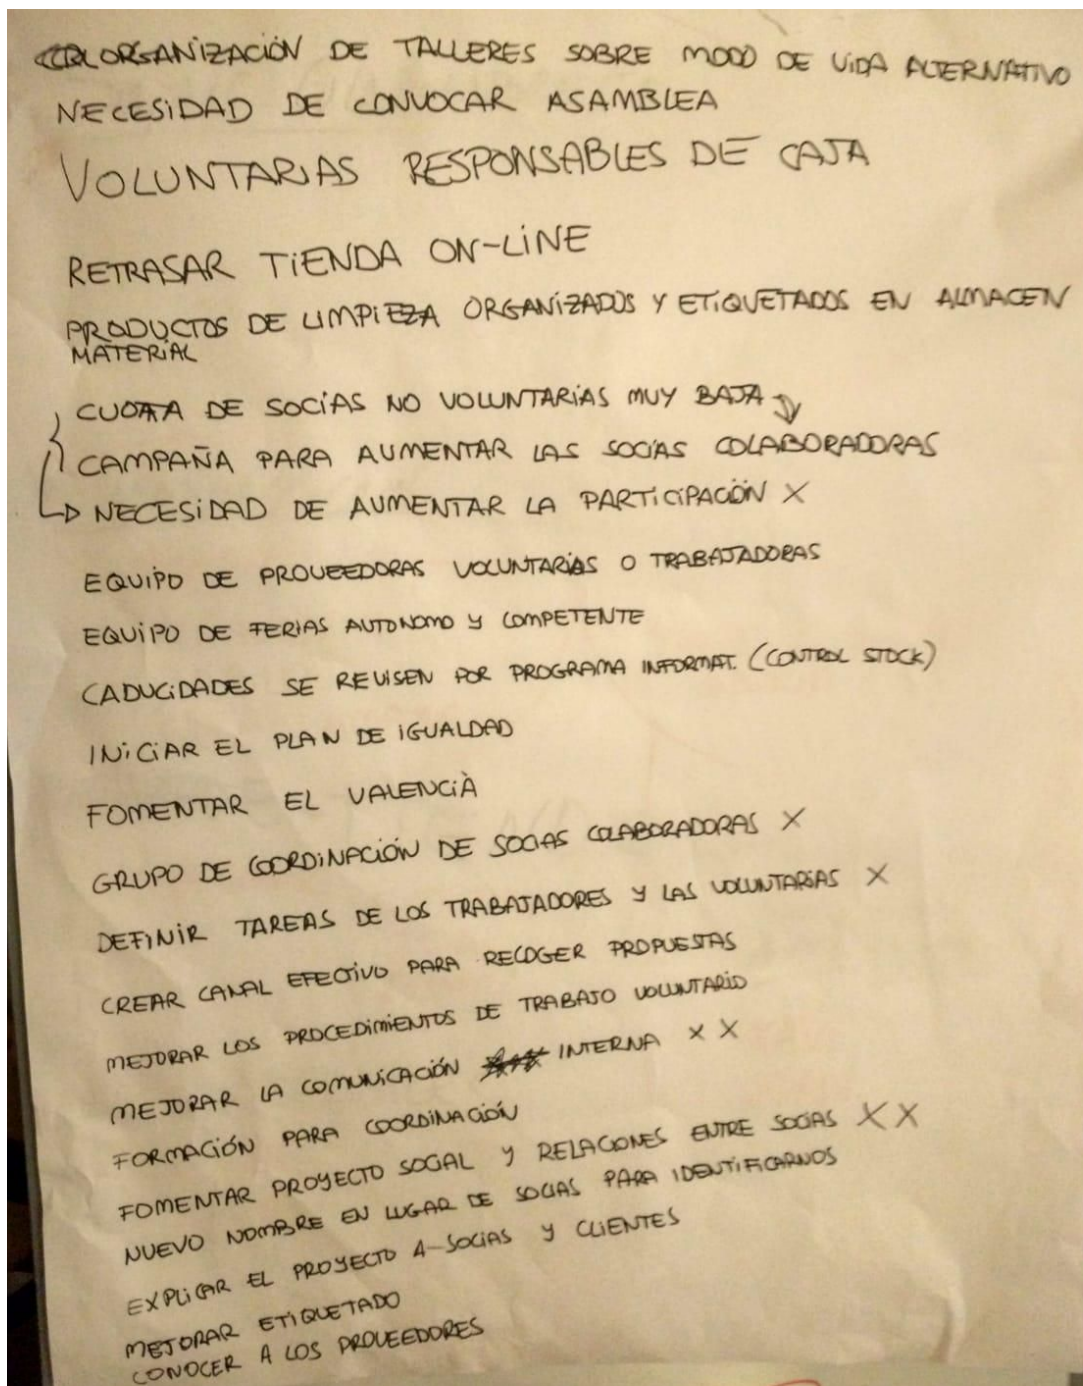 ORGANIZACIÓN DE TALLERES SOBRE MODO DE VIDA ALTERNATIVO
NECESIDAD DE CONVOCAR ASAMBLEA
VOLUNTARIAS RESPONSABLES DE CAJA
RETRASAR TIENDA ON-LINE
PRODUCTOS DE LIMPIEZA ORGANIZADOS Y ETIQUETADOS EN ALMACEN
MATERIAL
CUOTA DE SOCIAS NO VOLUNTARIAS MUY BAJA
CAMPAÑA PARA AUMENTAR LAS SOCIAS COLABORADORAS
NECESIDAD DE AUMENTAR LA PARTICIPACIÓN X
EQUIPO DE PROVEEDORAS VOLUNTARIAS O TRABAJADORAS
EQUIPO DE FERIAS AUTONOMO Y COMPETENTE
CADUCIDADES SE REVISEN POR PROGRAMA INFORMAT. (CONTROL STOCK)
INICIAR EL PLAN DE IGUALDAD
FOMENTAR EL VALENCIÀ
GRUPO DE COORDINACIÓN DE SOCIAS COLABORADORAS X
DEFINIR TAREAS DE LOS TRABAJADORES Y LAS VOLUNTARIAS X
CREAR CANAL EFECTIVO PARA RECOGER PROPUESTAS
MEJORAR LOS PROCEDIMIENTOS DE TRABAJO VOLUNTARIO
MEJORAR LA COMUNICACIÓN INTERNA X X
FORMACIÓN PARA COORDINACIÓN
FOMENTAR PROYECTO SOCIAL Y RELACIONES ENTRE SOCIAS X X
NUEVO NOMBRE EN LUGAR DE SOCIAS PARA IDENTIFICARNOS
EXPLICAR EL PROYECTO A SOCIAS Y CLIENTES
MEJORAR ETIQUETADO
CONOCER A LOS PROVEEDORES